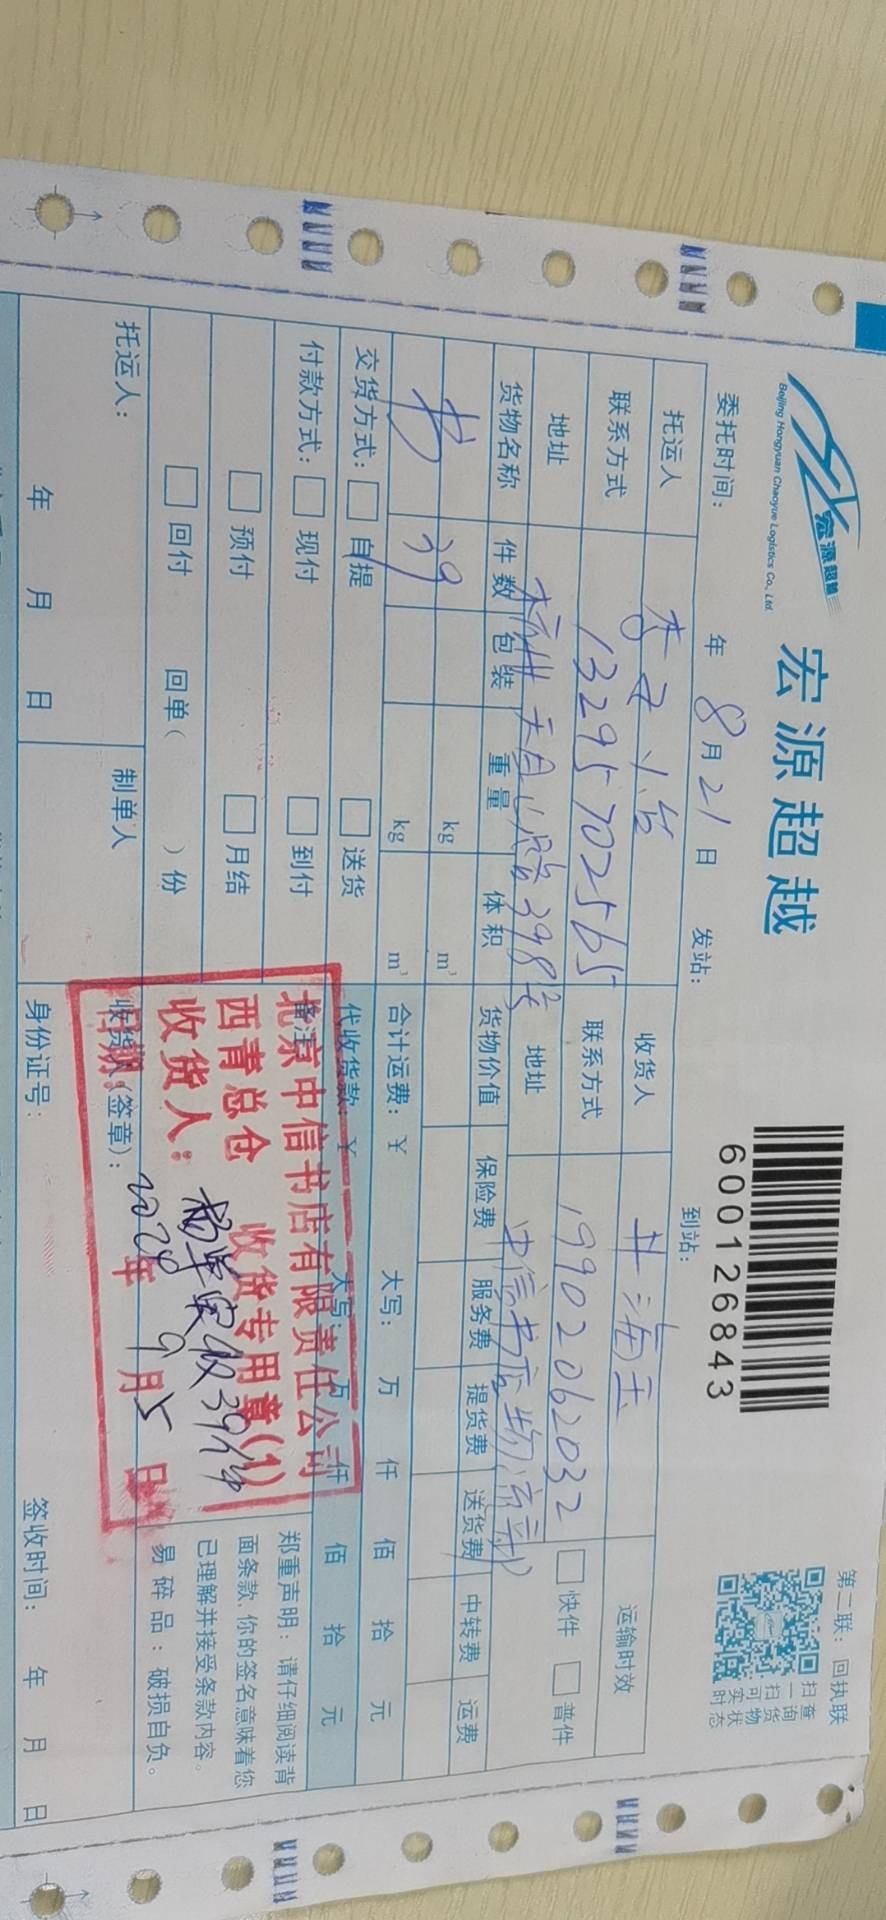 宏源超越
Beijing Hongyuan Chaoyue Logistics Co., Ltd.
宏 源 超 越
6000126843
第二联：回执联
扫一扫可实时
查询货物状态
委托时间： 年 8月21日 发站： 到站：
托运人 李子怡 收货人 井海玉 运输时效
联系方式 13295702565 联系方式 19902062032 快件 普件
地址 杭州天目山路398号 地址 中信书店物流部
货物名称 件数 包装 重量 体积 货物价值 保险费 服务费 提货费 送货费 中转费 运费
书 39 kg m³
kg m³ 合计运费：￥ 大写： 万 仟 佰 拾 元
交货方式： 自提 送货 代收货款：￥ 大写： 万 仟 佰 拾 元
付款方式： 现付 到付 备注：
预付 月结
回付 回单（ ）份
北京中信书店有限责任公司
西青总仓 收货专用章(1)
收货人： 收39件
年 9月5日
郑重声明：请仔细阅读背
面条款，你的签名意味着您
已理解并接受条款内容。
易碎品：破损自负。
托运人： 制单人 收货人(签章)：
年 月 日 身份证号： 签收时间： 年 月 日